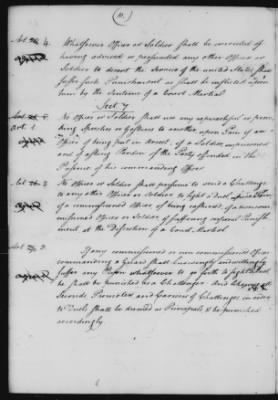 11.
Art. 4. Whatsoever Officer or Soldier shall be convicted of
having advised or persuaded any other Officer or
Soldier to desert the Service of the united States shall
suffer such Punishment as shall be inflicted upon
him by the Sentence of a Court Martial
Sect. 7
Art. 1 No Officer or Soldier shall use any reproachful or provo
king Speeches or Gestures to another upon Pain if an
Officer of being put in Arrest, if a Soldier, imprisoned
and of asking Pardon of the Party offended in the
Presence of his commanding Officer
Art. 2 No Officer or Soldier shall presume to send a Challenge
to any other Officer or Soldier to fight a duel upon Pain
if a commissioned Officer of being cashiered, if a noncom
missioned Officer or Soldier of suffering corporal Punish
ment at the Discretion of a Court Martial
Art. 3 If any commissioned or non commissioned Officer
commanding a Guard shall knowingly and willingly
suffer any Person whatsoever to go forth to fight a Duel
he shall be punished as a Challenger And
Seconds Promoters and Carriers of Challenges in order
to Duels shall be deemed as Principals & be punished
accordingly.